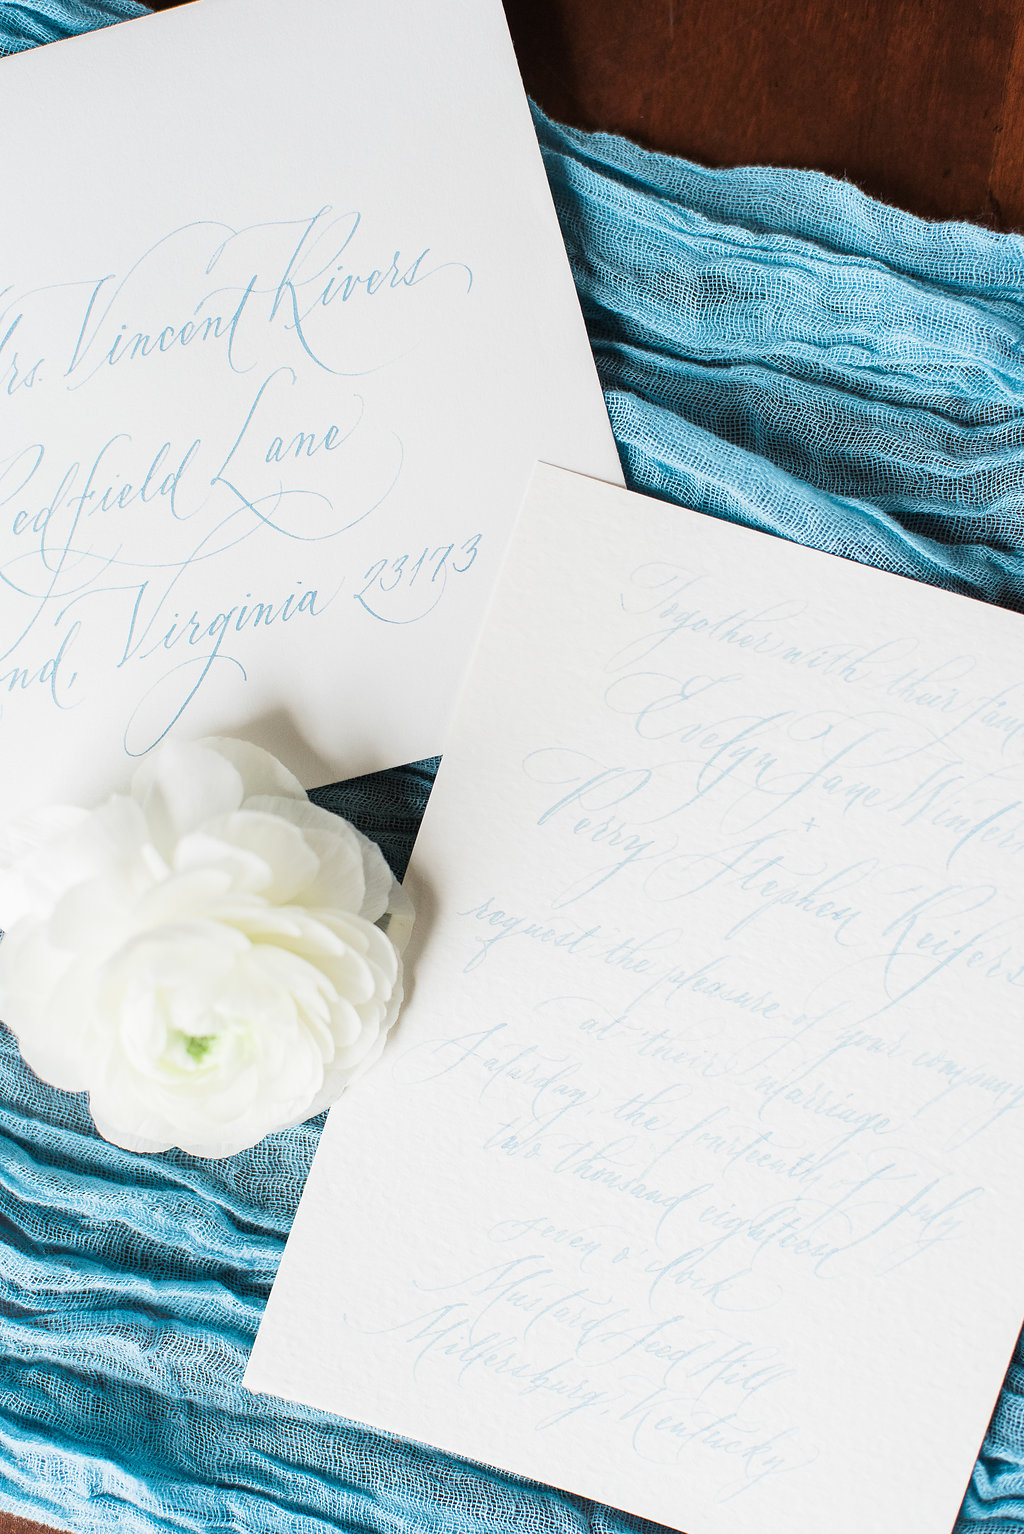 rs. Vincent Rivers
edfield Lane
ond, Virginia 23173
Together with their fam
Evelyn Jane Winders
+
Perry Stephen Keifers
request the pleasure of your company
at their marriage
Saturday, the fourteenth of July
two thousand eighteen
seven o'clock
Mustard Seed Hill
Millersburg, Kentucky